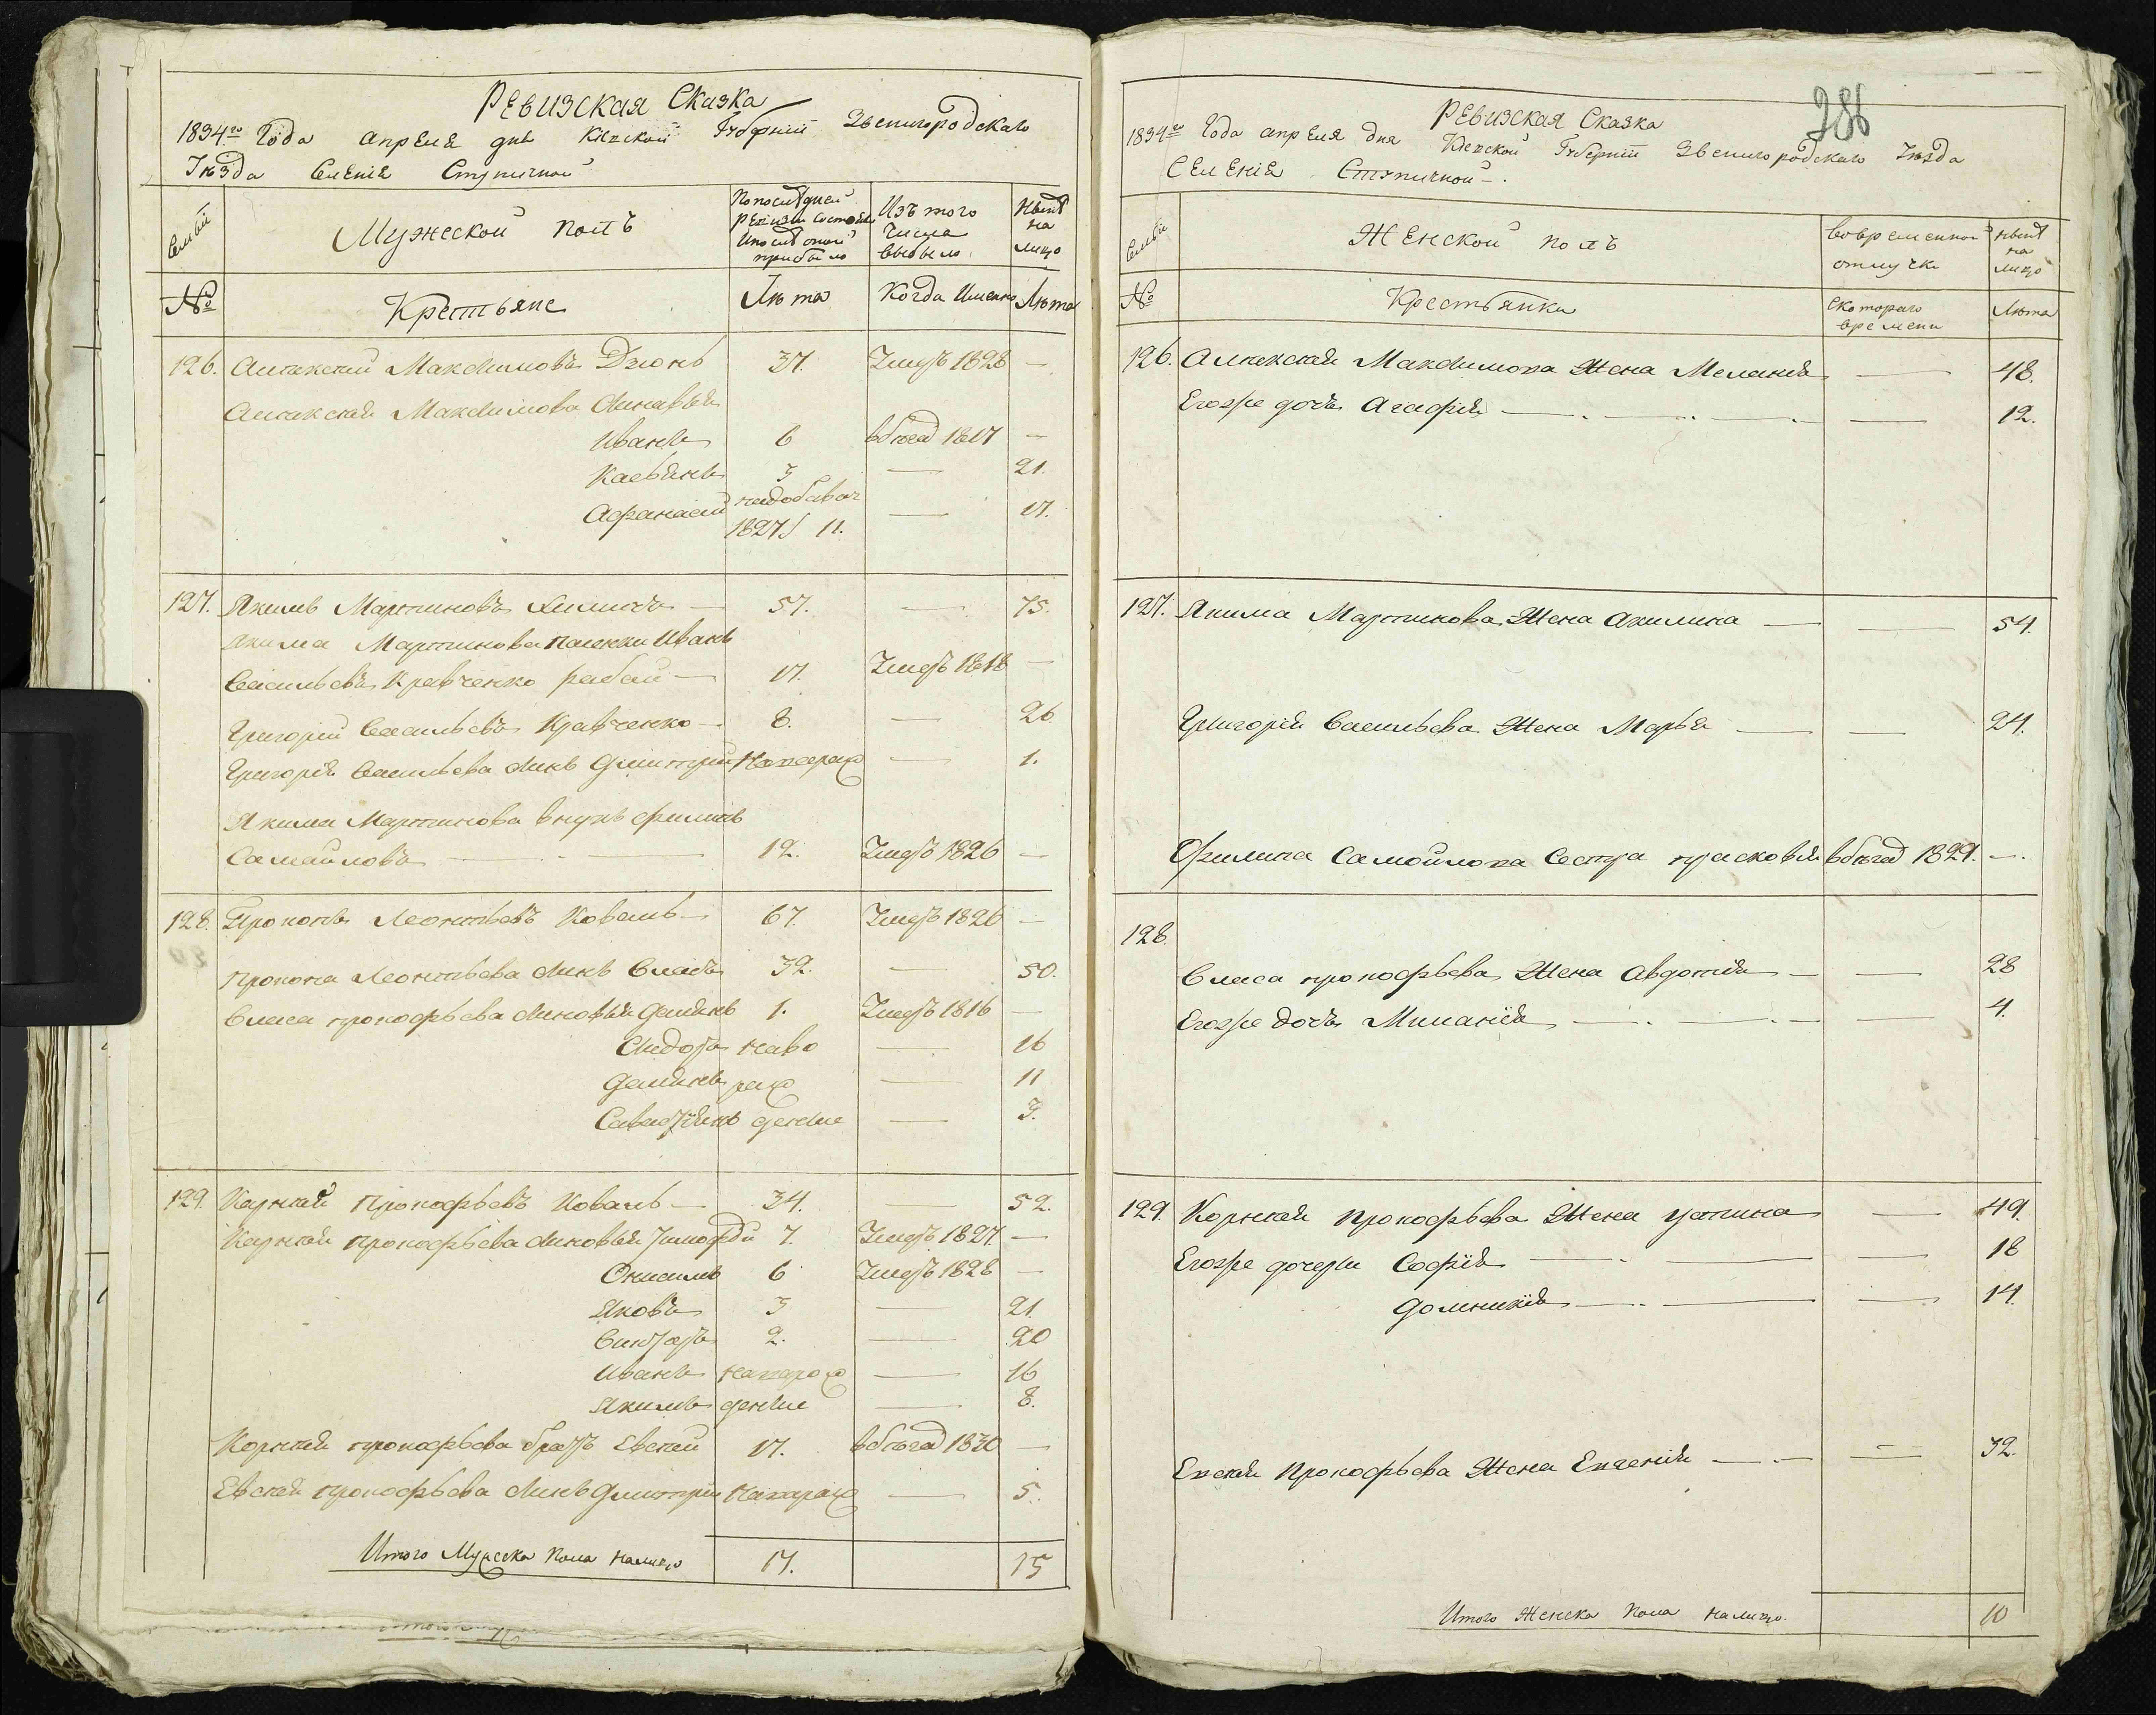 Ревизская Сказка
1834го Года апреля дня Киевской Губернии Звенигородскаго
Уѣзда Селенія Ступичной
Семьи
Мужеской полъ
По последней ревизии состояло и после оной прибыло
Изъ того числа выбыло
Нынѣ на лицо
№
Крестьяне
Лѣта
Когда Именно
Лѣта
126. Алексей Максимовъ Дзюнь 37. Умеръ 1828 —
Алексея Максимова Синовья
Иванъ 6 въ бѣгах 1817 —
Касьянъ 3 — 21.
Афанасий 1827 / 11. — 17.
127. Якимъ Мартиновъ — 57. — 75.
Якима Мартинова Иванъ
Васильевъ Кравченко рабой — 17. Умеръ 1818 —
Григорий Васильевъ Кравченко — 8. — 26
Григория Васильева Синъ Дмитрий Новорож — 1.
Якима Мартинова внукъ Филипъ
Самойловъ — 12. Умеръ 1826 —
128. Прокопъ Леонтьевъ Коваль — 67. Умеръ 1826 —
Прокопа Леонтьева Синъ Власъ 32. — 50.
Власа прокофьева Синовья Демянъ 1. Умеръ 1816 —
Сидоръ Ново — 16
Демянъ рож — 11
Савастиянъ денние — 3.
129. Карней Прокофьевъ Коваль — 34. — 52.
Карнея прокофьева Синовья Тимофей 7. Умеръ 1827. —
Онисимъ 6 Умеръ 1828 —
Яковъ 3 — 21.
Викторъ 2. — 20
Иванъ Новорож — 16
Якимъ денние — 8.
Корнея прокофьева братъ Евсей 17. въ бѣгах 1830 —
Евсея прокофьева Синъ Дмитрий Новорож — 5.
Итого Мужеска Пола налицо 17. 15
286
Ревизская Сказка
1834го Года апреля дня Киевской Губернии Звенигородскаго Уѣзда
Селенія Ступичной —.
Семьи
Женской полъ
во временной отлучке
Нынѣ на лицо
№
Крестьянки
с котораго времени
Лѣта
126. Алексея Максимова Жена Меланія — 48.
Егоже дочь Агафия — 12.
127. Якима Мартинова Жена Акилина — 54.
Григория Васильева Жена Марья — 24.
Филипа Самойлова Сестра прасковия въ бѣгах 1829. —.
128.
Власа прокофьева Жена Авдотия — 28
Егоже дочь Миланія — 4.
129. Корнея Прокофьева Жена устина — 49.
Егоже дочери Софія — 18
Домникія — 14.
Евсея Прокофьева Жена Евгения — 32.
Итого Женска Пола налицо. 10